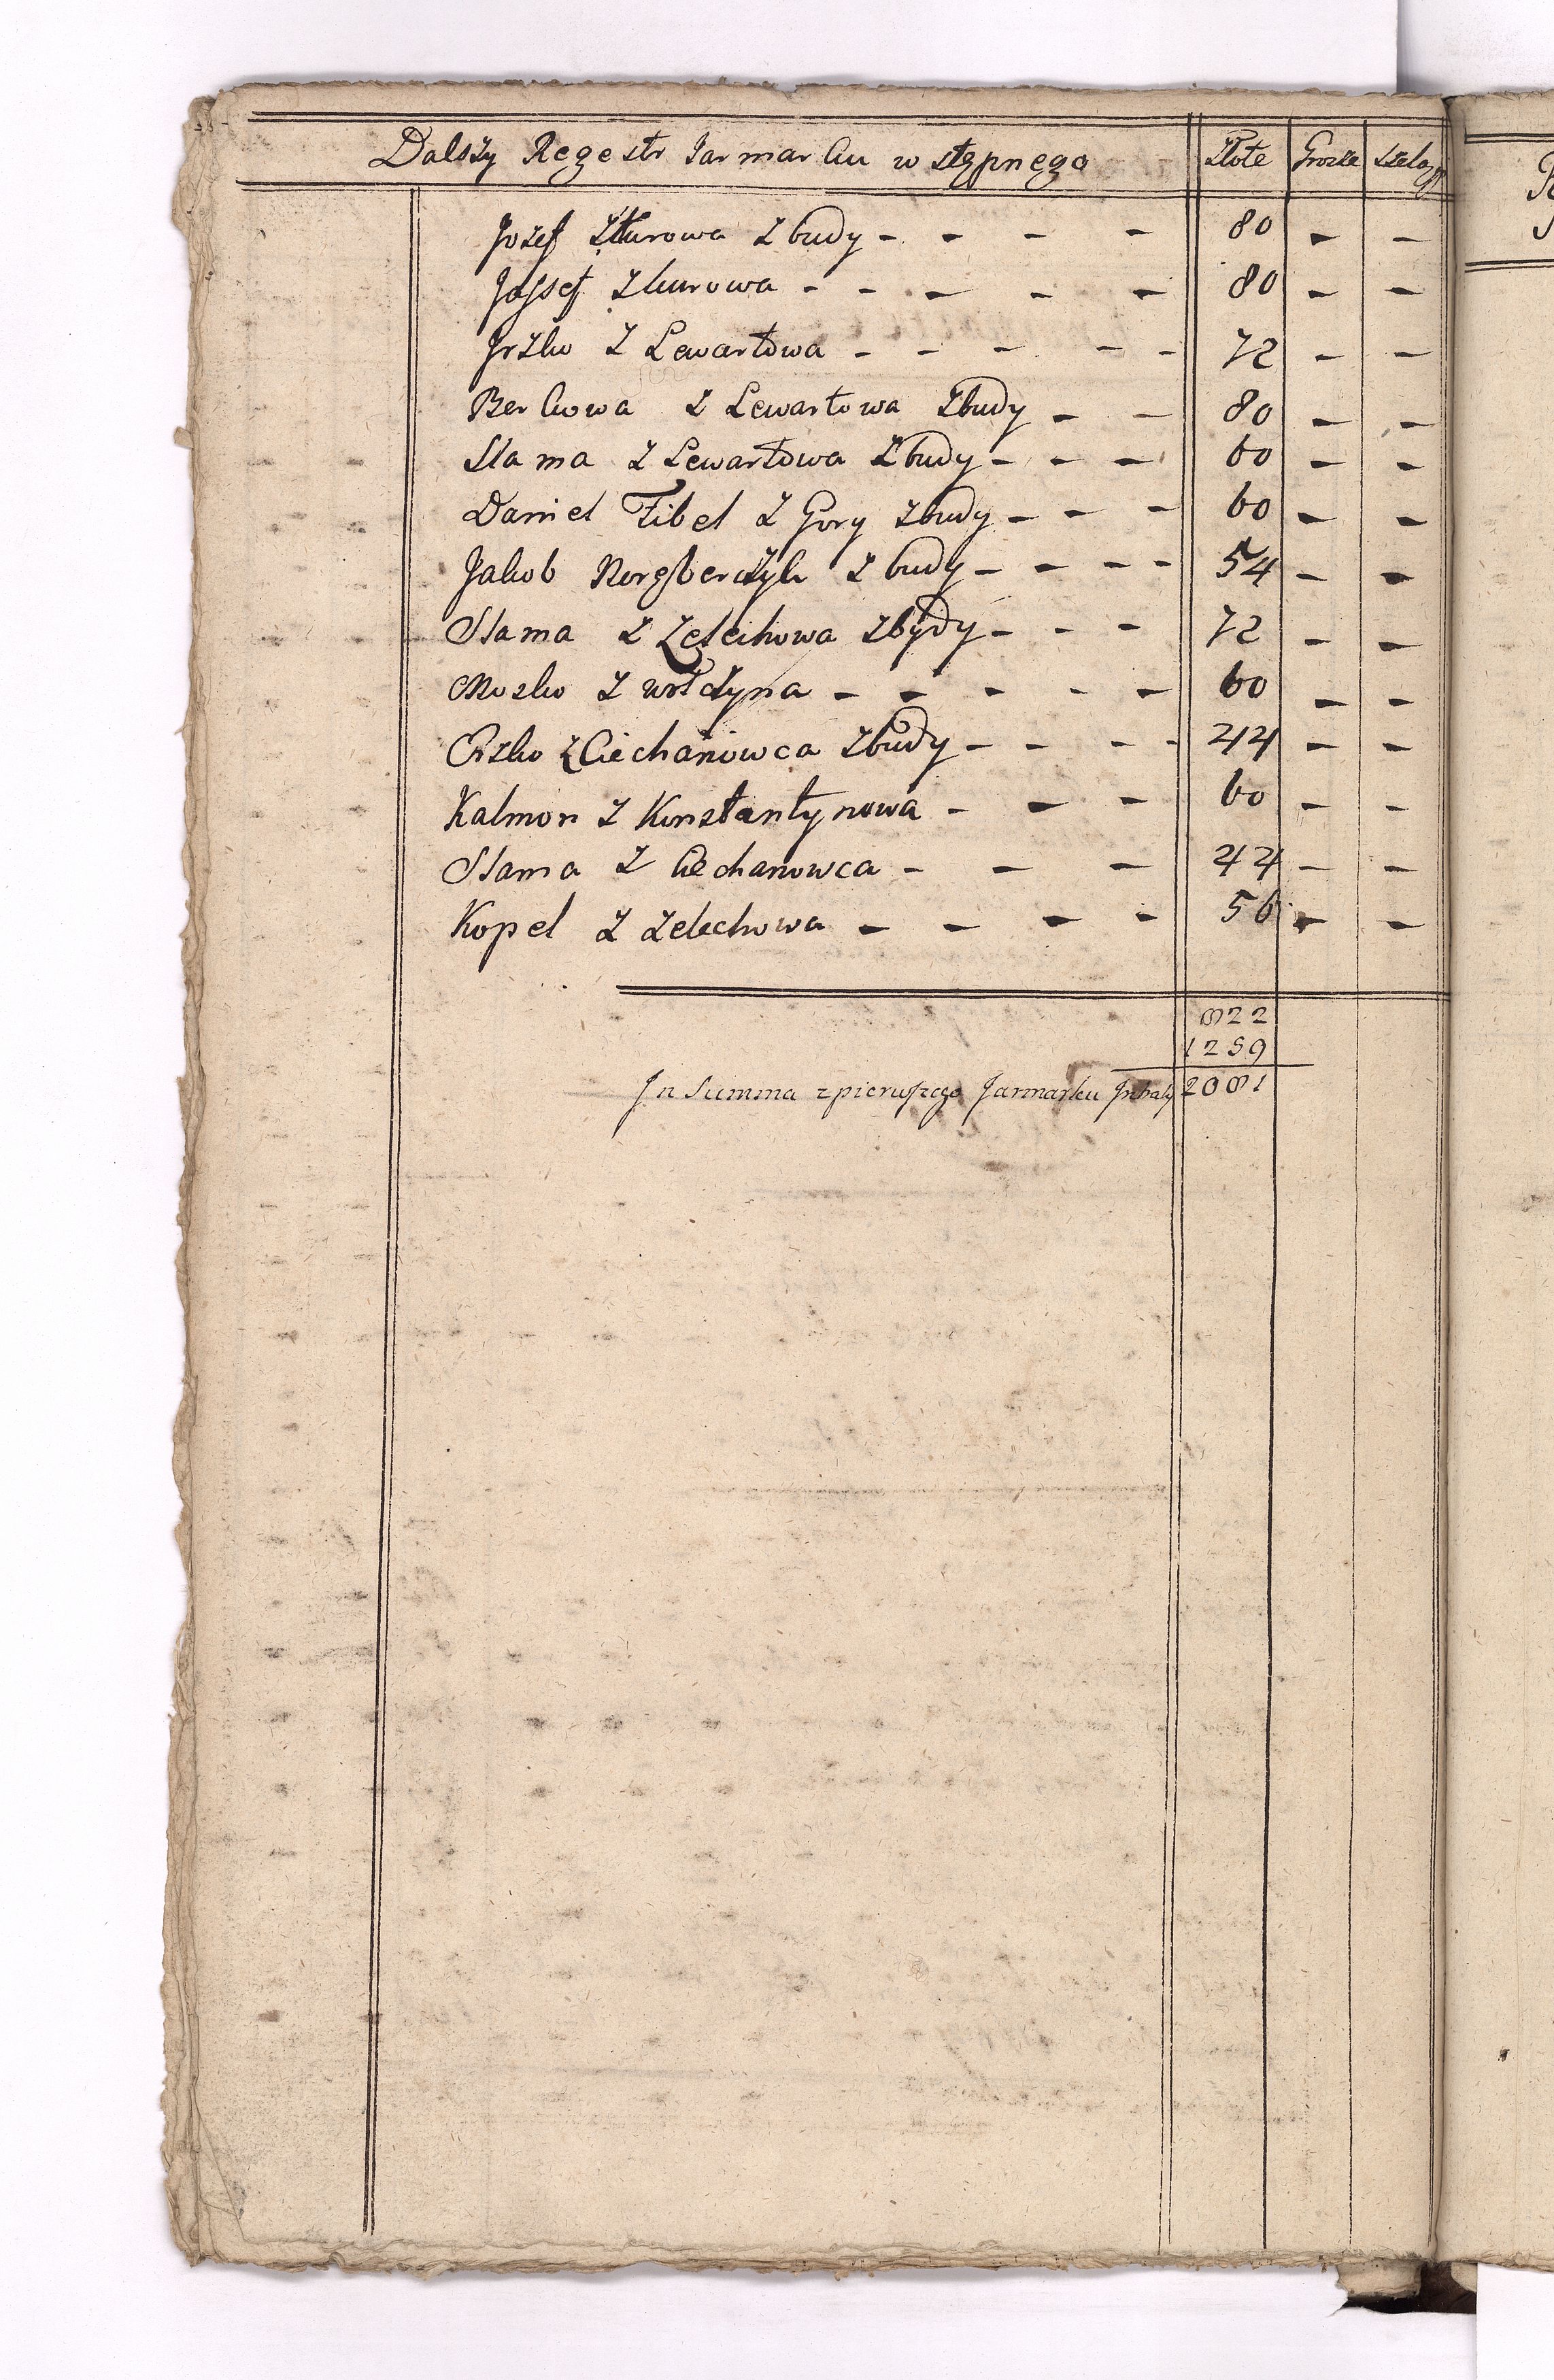 Dalszy Regestr Jarmarku wstępnego Złote Grosze Szelągi
Jozef z Kurowa z budy - - - - 80 - -
Jossef z Kurowa - - - - - 80 - -
Jrzko z Lewartowa - - - - - 72 - -
Berkowa z Lewartowa z budy - - 80 - -
Slama z Lewartowa z budy - - - 60 - -
Daniel Fibel z Gory z budy - - - 60 - -
Jakob z budy - - - - 54 - -
Slama z Zelechowa z bydy - - - 72 - -
Moszko z - - - - - 60 - -
z Ciechanowca z budy - - - - 44 - -
Kalmon z Konstantynowa - - - 60 - -
Slama z Ciechanowca - - - 44 - -
Kopel z Zelechowa - - - - 56 - -
822
1259
Jn Summa z pierwszego Jarmarku 2081